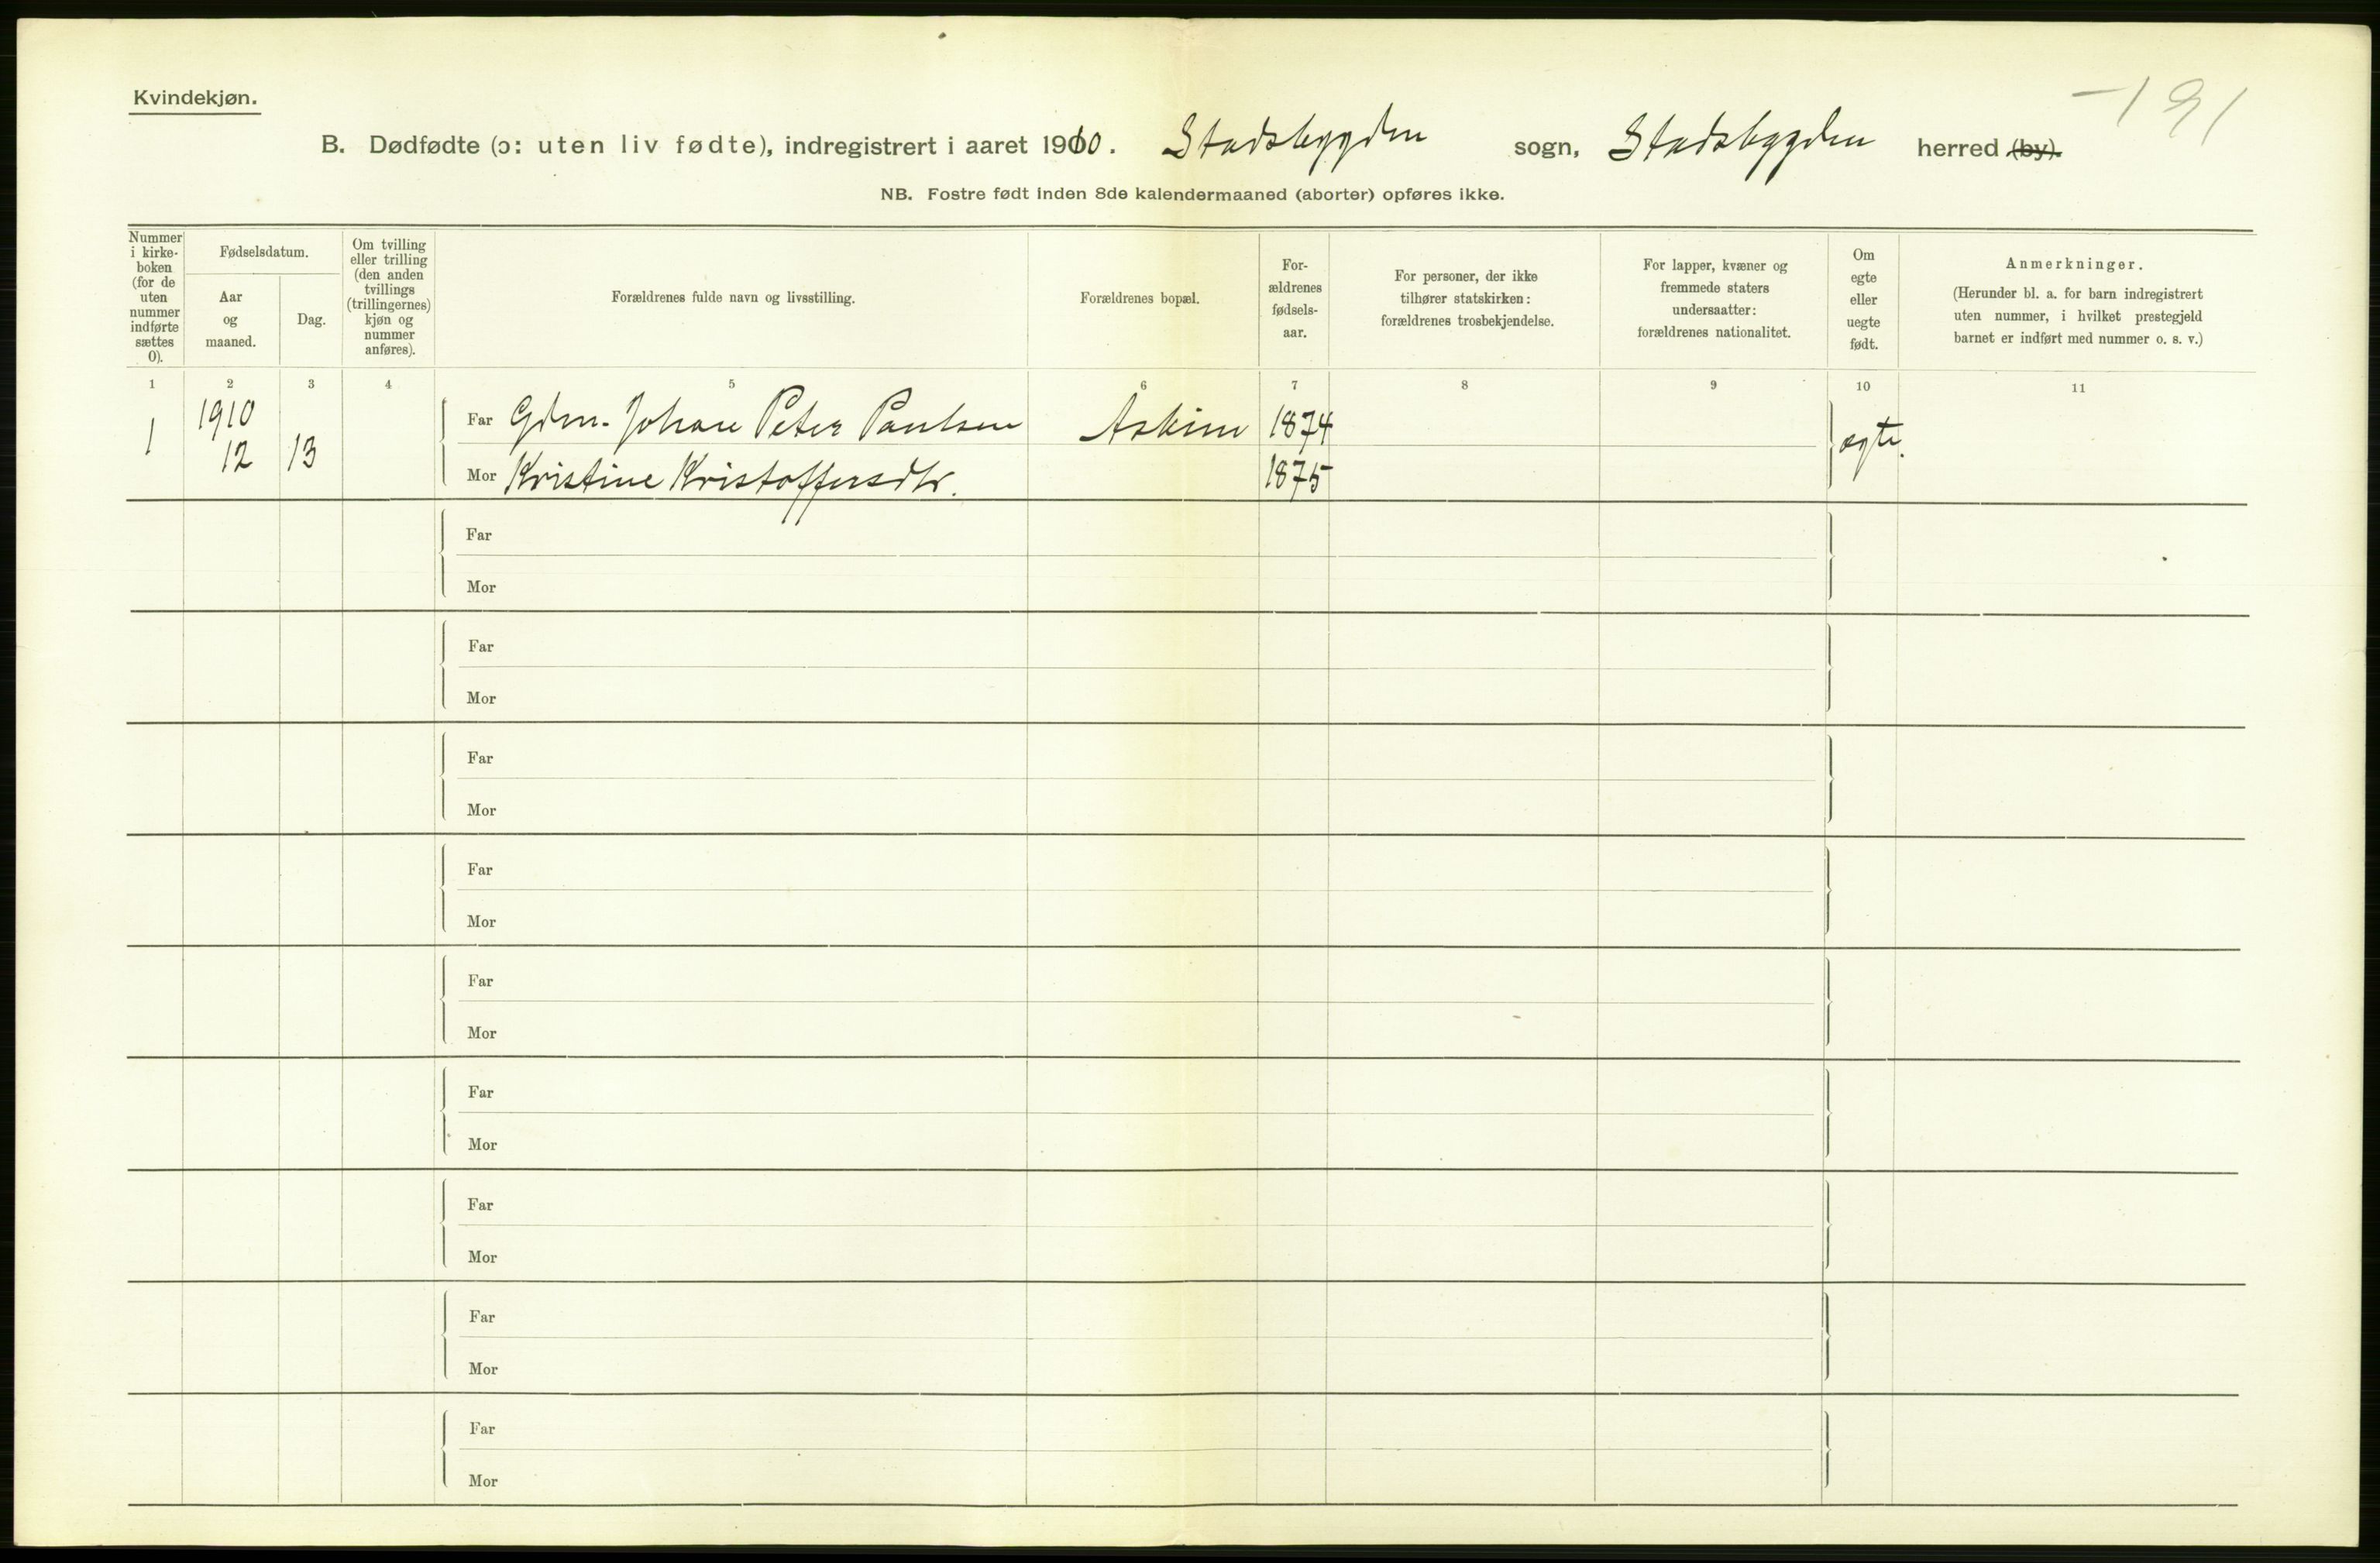 Kvindekjøn.
-191
B. Dødfødte (ɔ: uten liv fødte), indregistrert i aaret 1910. Stadsbygden sogn, Stadsbygden herred (by).
NB. Fostre født inden 8de kalendermaaned (aborter) opføres ikke.
Nummer i kirke-boken (for de uten nummer indførte sættes 0).
Fødselsdatum.
Aar og maaned.
Dag.
Om tvilling eller trilling (den anden tvillings (trillingernes) kjøn og nummer anføres).
Forældrenes fulde navn og livsstilling.
Forældrenes bopæl.
For-ældrenes fødsels-aar.
For personer, der ikke tilhører statskirken: forældrenes trosbekjendelse.
For lapper, kvæner og fremmede staters undersaatter: forældrenes nationalitet.
Om egte eller uegte født.
Anmerkninger.
(Herunder bl. a. for barn indregistrert uten nummer, i hvilket prestegjeld barnet er indført med nummer o. s. v.)
1 2 3 4 5 6 7 8 9 10 11
1 1910 12 13 Far Gdm. Johan Peter Paulsen Askim 1874 egte.
Mor Kristine Kristoffersdtr. 1875
Far
Mor
Far
Mor
Far
Mor
Far
Mor
Far
Mor
Far
Mor
Far
Mor
Far
Mor
Far
Mor